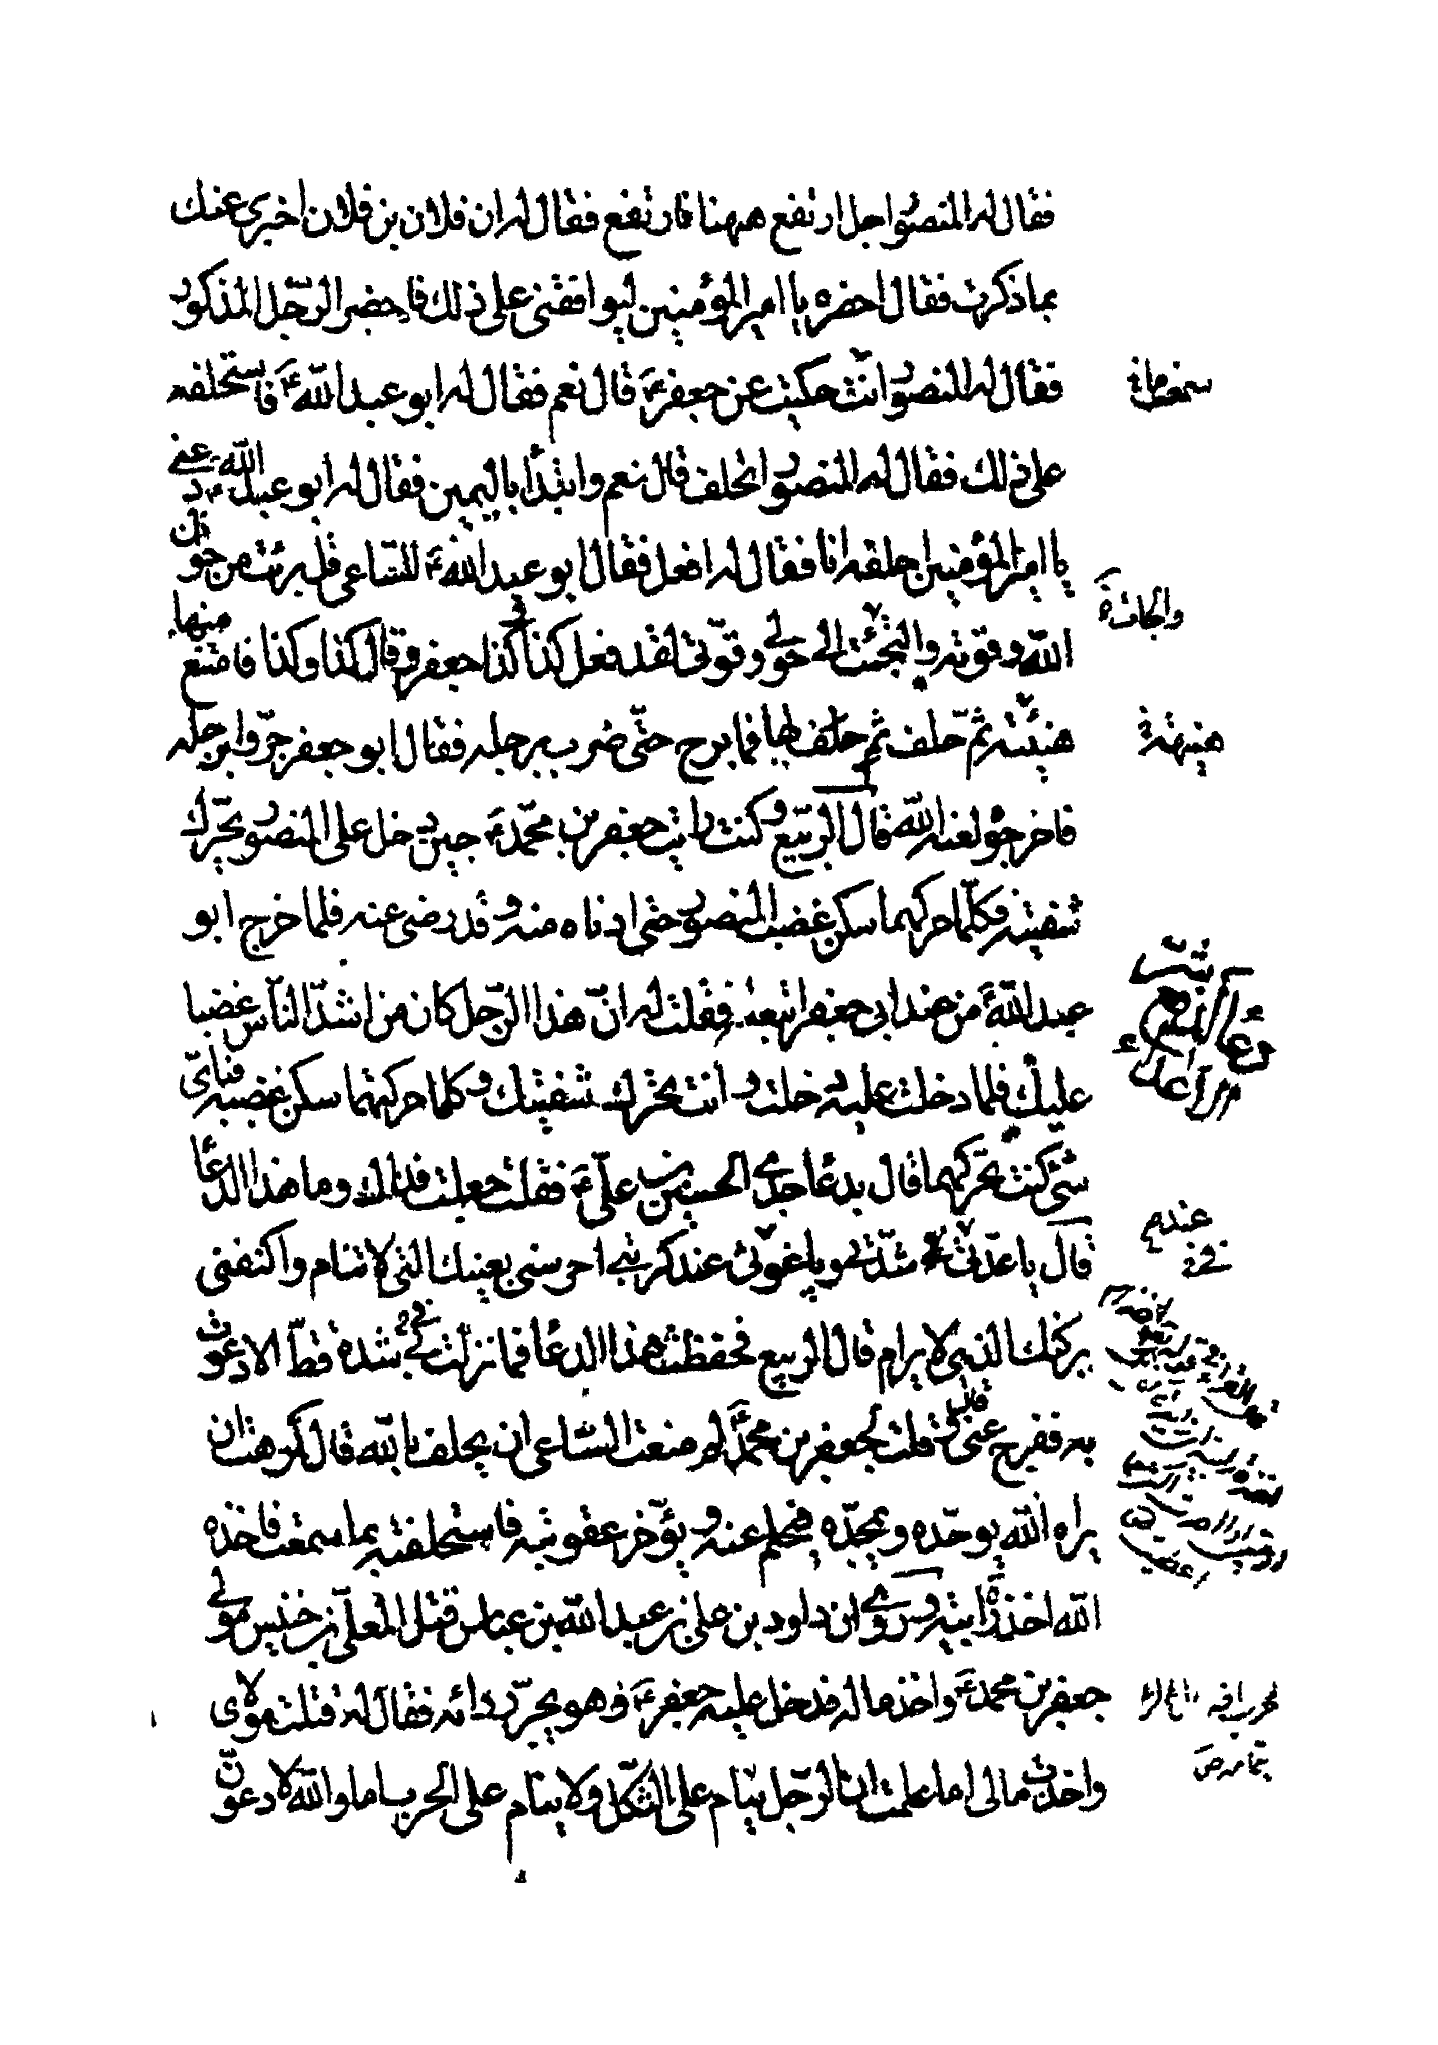 فقال له المنصور اجل ارتفع ههنا فارتفع فقال له ان فلان بن فلان اخبرني عنك
بما ذكرت فقال احضره يا امير المؤمنين ليوافقني على ذلك فاحضر الرجل المذكور
فقال له المنصور انت حكيت عن جعفر ع قال نعم فقال له ابو عبد الله ع فاستحلفه
على ذلك فقال له المنصور اتحلف قال نعم وابتدأ باليمين فقال له ابو عبد الله ع دعني
يا امير المؤمنين احلفه انا فقال له افعل فقال ابو عبد الله ع للساعي قل برئت من حول
الله وقوته والتجئت الى حولي وقوتي لقد فعل كذا وكذا جعفر وقال كذا وكذا فامتنع منها
هنيئة ثم حلف بها فما برح حتى ضرب برجله فقال ابو جعفر جروا برجله
فاخرجوه لعنه الله قال الربيع وكنت رايت جعفر بن محمد ع حين دخل على المنصور يحرك
شفتيه فكلما حركهما سكن غضب المنصور حتى ادناه منه وقد رضي عنه فلما خرج ابو
عبد الله ع من عند ابي جعفر اتبعته فقلت له ان هذا الرجل كان من اشد الناس غضبا
عليك فلما دخلت عليه دخلت وانت تحرك شفتيك وكلما حركتهما سكن غضبه فباي
شئ كنت تحركهما قال بدعا جدي الحسين بن علي ع فقلت جعلت فداك وما هذا الدعا
قال يا عدتي عند شدتي ويا غوثي عند كربتي احرسني بعينك التي لا تنام واكنفني
بركنك الذي لا يرام قال الربيع فحفظت هذا الدعا فما نزلت بي شدة قط الا دعوت
به ففرج عني قال وقلت لجعفر بن محمد ع لم منعت الساعي ان يحلف بالله قال كرهت ان
يراه الله يوحده ويمجده فيحلم عنه ويؤخر عقوبته فاستحلفته بما سمعت فاخذه
الله اخذة رابية وروي ان داود بن علي بن عبد الله بن عباس قتل المعلى بن خنيس مولى
جعفر بن محمد ع واخذ ماله فدخل عليه جعفر ع وهو يجر رداءه فقال له قتلت مولاي
واخذت مالي اما علمت ان الرجل ينام على الثكل ولا ينام على الحرب اما والله لادعون
والجأت
هنيهة
عندي